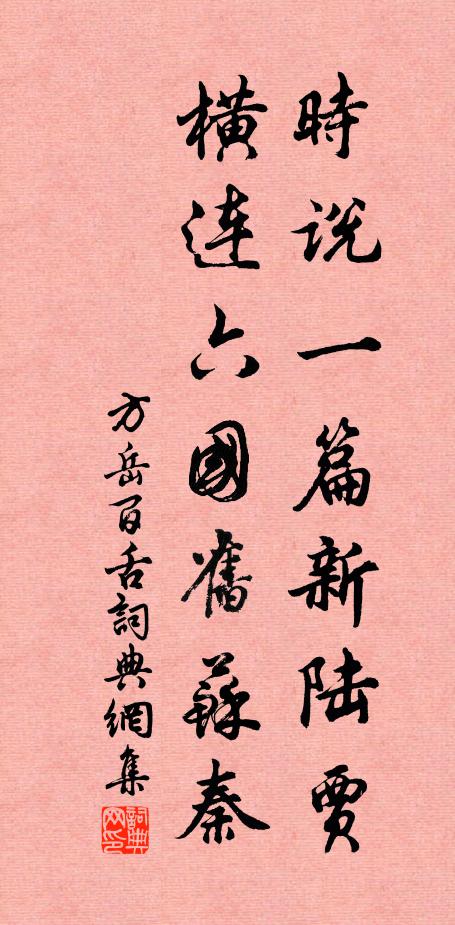 時說一篇新陸賈
橫連六國舊蘇秦
方岳百舌詞典網集
詞典网印